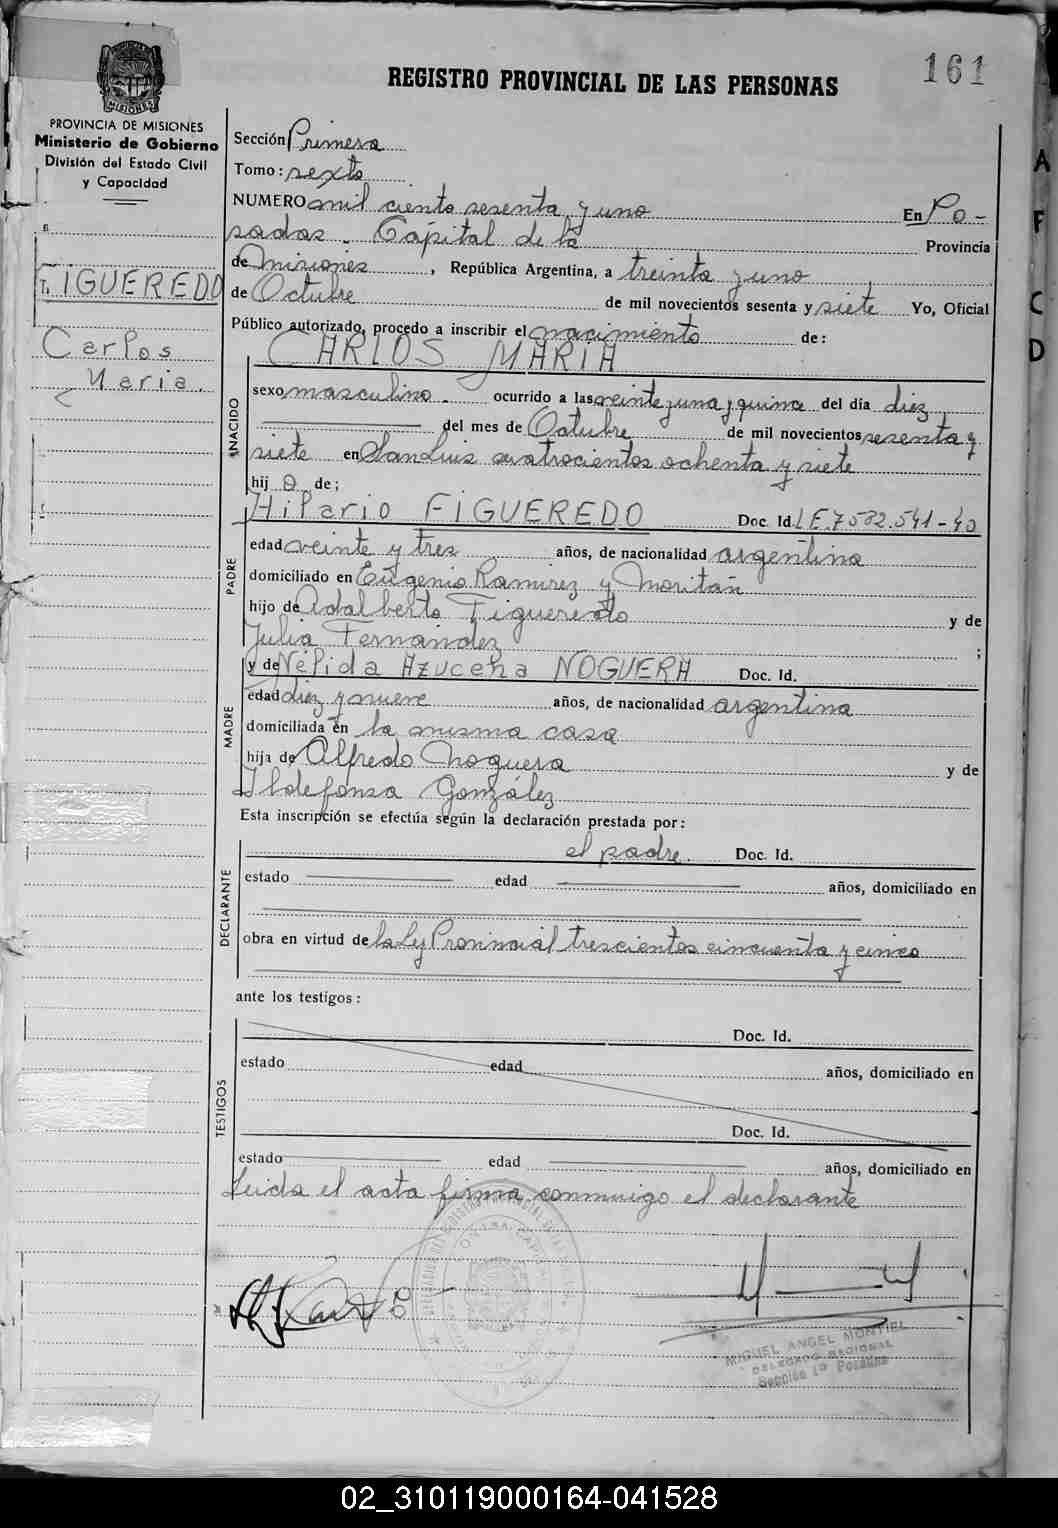 161
REGISTRO PROVINCIAL DE LAS PERSONAS
MISIONES
PROVINCIA DE MISIONES
Ministerio de Gobierno
División del Estado Civil
y Capacidad
FIGUEREDO
Carlos
Maria.
Sección Primera
Tomo: sexto
NUMERO mil ciento sesenta y uno En Po-
sadas. Capital de la Provincia
de Misiones, República Argentina, a treinta y uno
de Octubre de mil novecientos sesenta y siete Yo, Oficial
Público autorizado, procedo a inscribir el nacimiento de:
CARLOS MARIA
NACIDO
sexo masculino. ocurrido a las veinte y una y quince del día diez
del mes de Octubre de mil novecientos sesenta y
siete en San Luis cuatrocientos ochenta y siete
hij o de;
PADRE
Hilario FIGUEREDO Doc. Id. L.E. 7.582.541-40
edad veinte y tres años, de nacionalidad argentina
domiciliado en Eugenio Ramirez y Moritán
hijo de Adalberto Figueredo y de
Julia Fernandez ;
MADRE
y de Nélida Azucena NOGUERA Doc. Id.
edad diez y nueve años, de nacionalidad argentina
domiciliada en la misma casa
hija de Alfredo Noguera y de
Ildefonsa González
Esta inscripción se efectúa según la declaración prestada por:
DECLARANTE
el padre. Doc. Id.
estado edad años, domiciliado en
obra en virtud de la Ley Provincial trescientos cincuenta y cinco
ante los testigos:
TESTIGOS
Doc. Id.
estado edad años, domiciliado en
Doc. Id.
estado edad años, domiciliado en
Leida el acta firma conmmigo el declarante
MIGUEL ANGEL MONTIEL
DELEGADO REGIONAL
Sección 1a Posadas
A
F
C
D
02_310119000164-041528